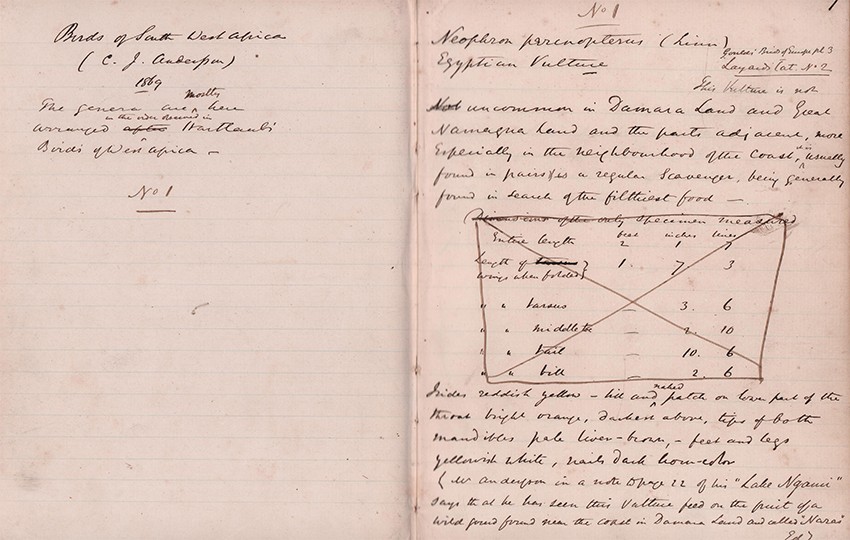 Birds of South West Africa
(C. J. Andersson)
1869
The genera are mostly here
arranged after in the order observed in Hartlaub's
Birds of West Africa —
No 1
No 1
1
Neophron percnopterus (Linn)
Gould's Birds of Europe pl 3
Egyptian Vulture
Layard's Cat. No 2
This Vulture is not
Not uncommon in Damara Land and Great
Namaqua Land and the parts adjacent, more
Especially in the neighbourhood of the Coast, usually
found in pairs, is a regular Scavenger, being generally
found in search of the filthiest food —
Dimensions of the only specimen measured
feet inches lines
Entire length 2 1 7
Length of tarsus wings when folded } 1. 7 3
" " tarsus — 3. 6
" " middle toe — 2. 10
" " tail — 10. 6
" " bill — 2. 6
Irides reddish yellow – bill and naked patch on lower part of the
throat bright orange, darkest above, tips of both
mandibles pale liver-brown, – feet and legs
yellowish white, nails dark horn-color
( Mr Andersson in a note to page 22 of his "Lake Ngami"
says that he has seen this Vulture feed on the fruit of a
wild gourd found near the coast in Damara Land and called "Naras"
Ed)